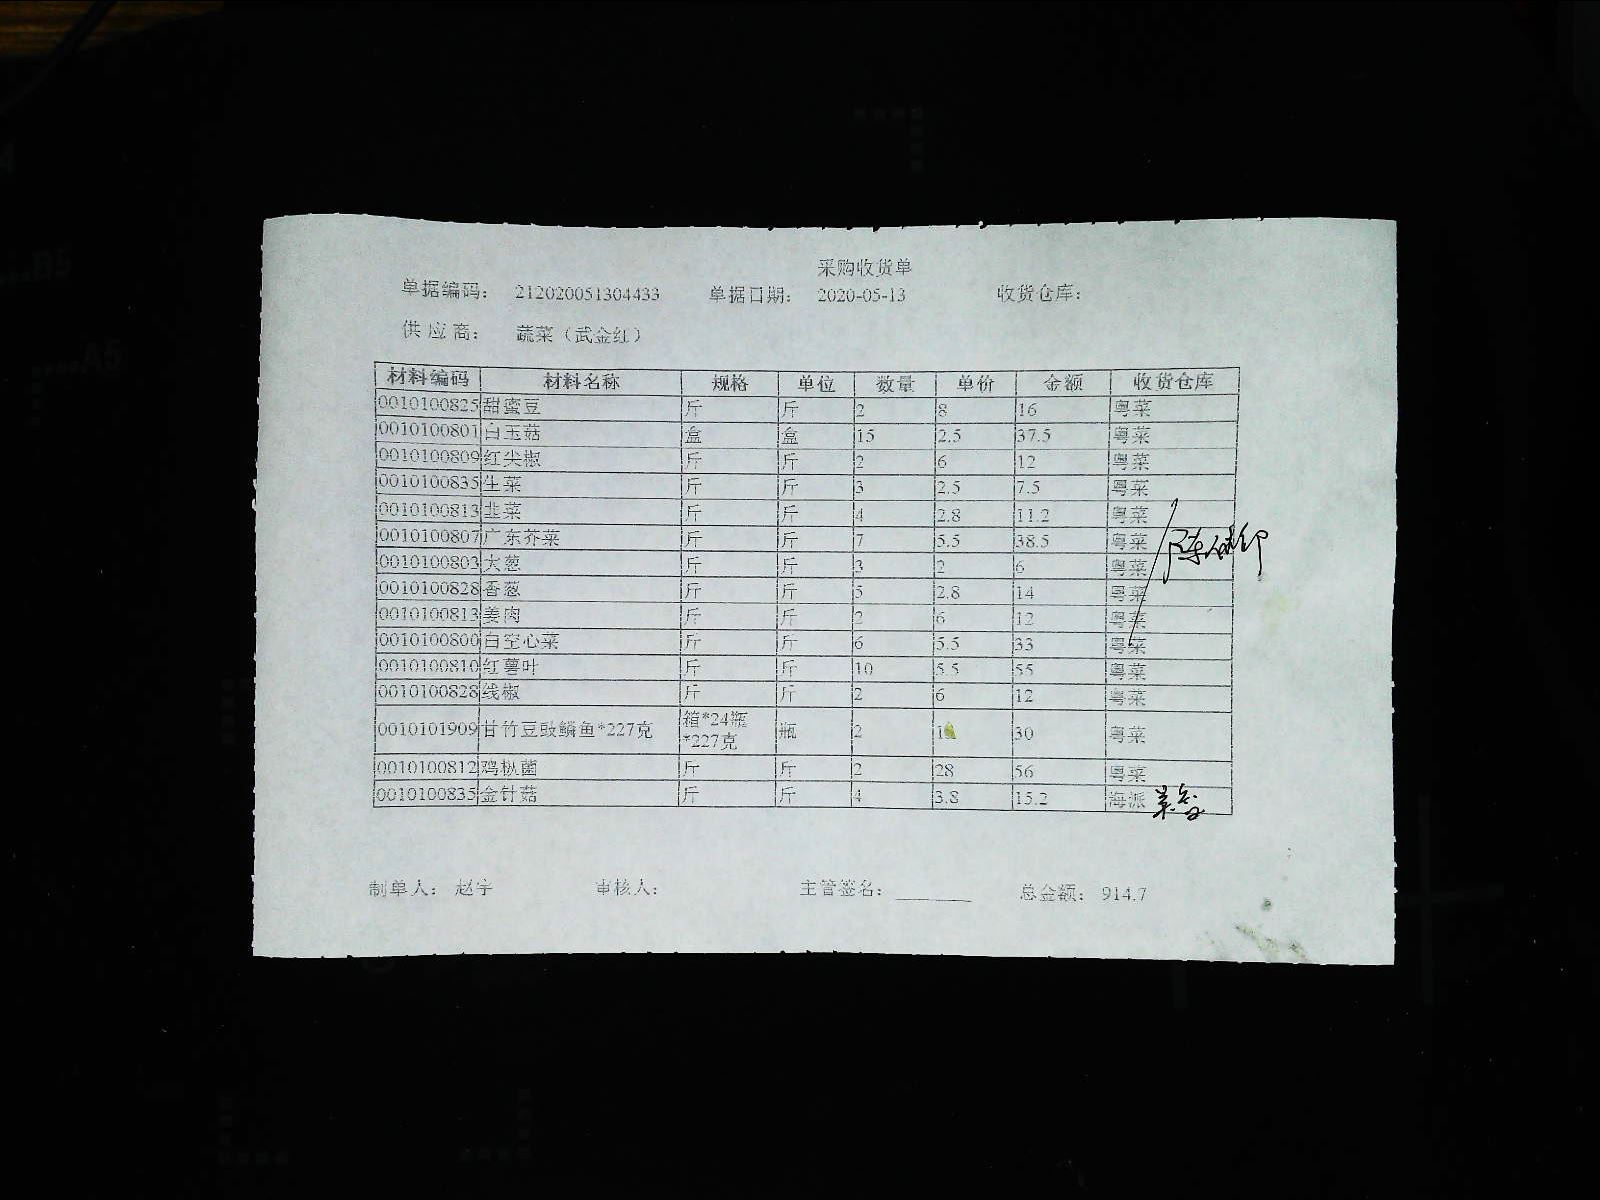 采购收货单
单据编码： 212020051304433 单据日期： 2020-05-13 收货仓库：
供应商： 蔬菜（武金红）
材料编码 材料名称 规格 单位 数量 单价 金额 收货仓库
0010100825 甜蜜豆 斤 斤 2 8 16 粤菜
0010100801 白玉菇 盒 盒 15 2.5 37.5 粤菜
0010100809 红尖椒 斤 斤 2 6 12 粤菜
0010100835 生菜 斤 斤 3 2.5 7.5 粤菜
0010100813 韭菜 斤 斤 4 2.8 11.2 粤菜
0010100807 广东芥菜 斤 斤 7 5.5 38.5 粤菜
0010100803 大葱 斤 斤 3 2 6 粤菜
0010100828 香葱 斤 斤 5 2.8 14 粤菜
0010100813 姜肉 斤 斤 2 6 12 粤菜
0010100800 白空心菜 斤 斤 6 5.5 33 粤菜
0010100810 红薯叶 斤 斤 10 5.5 55 粤菜
0010100828 线椒 斤 斤 2 6 12 粤菜
0010101909 甘竹豆豉鳞鱼*227克 箱*24瓶*227克 瓶 2 30 粤菜
0010100812 鸡枞菌 斤 斤 2 28 56 粤菜
0010100835 金针菇 斤 斤 4 3.8 15.2 海派
制单人： 赵宇 审核人： 主管签名： 总金额： 914.7